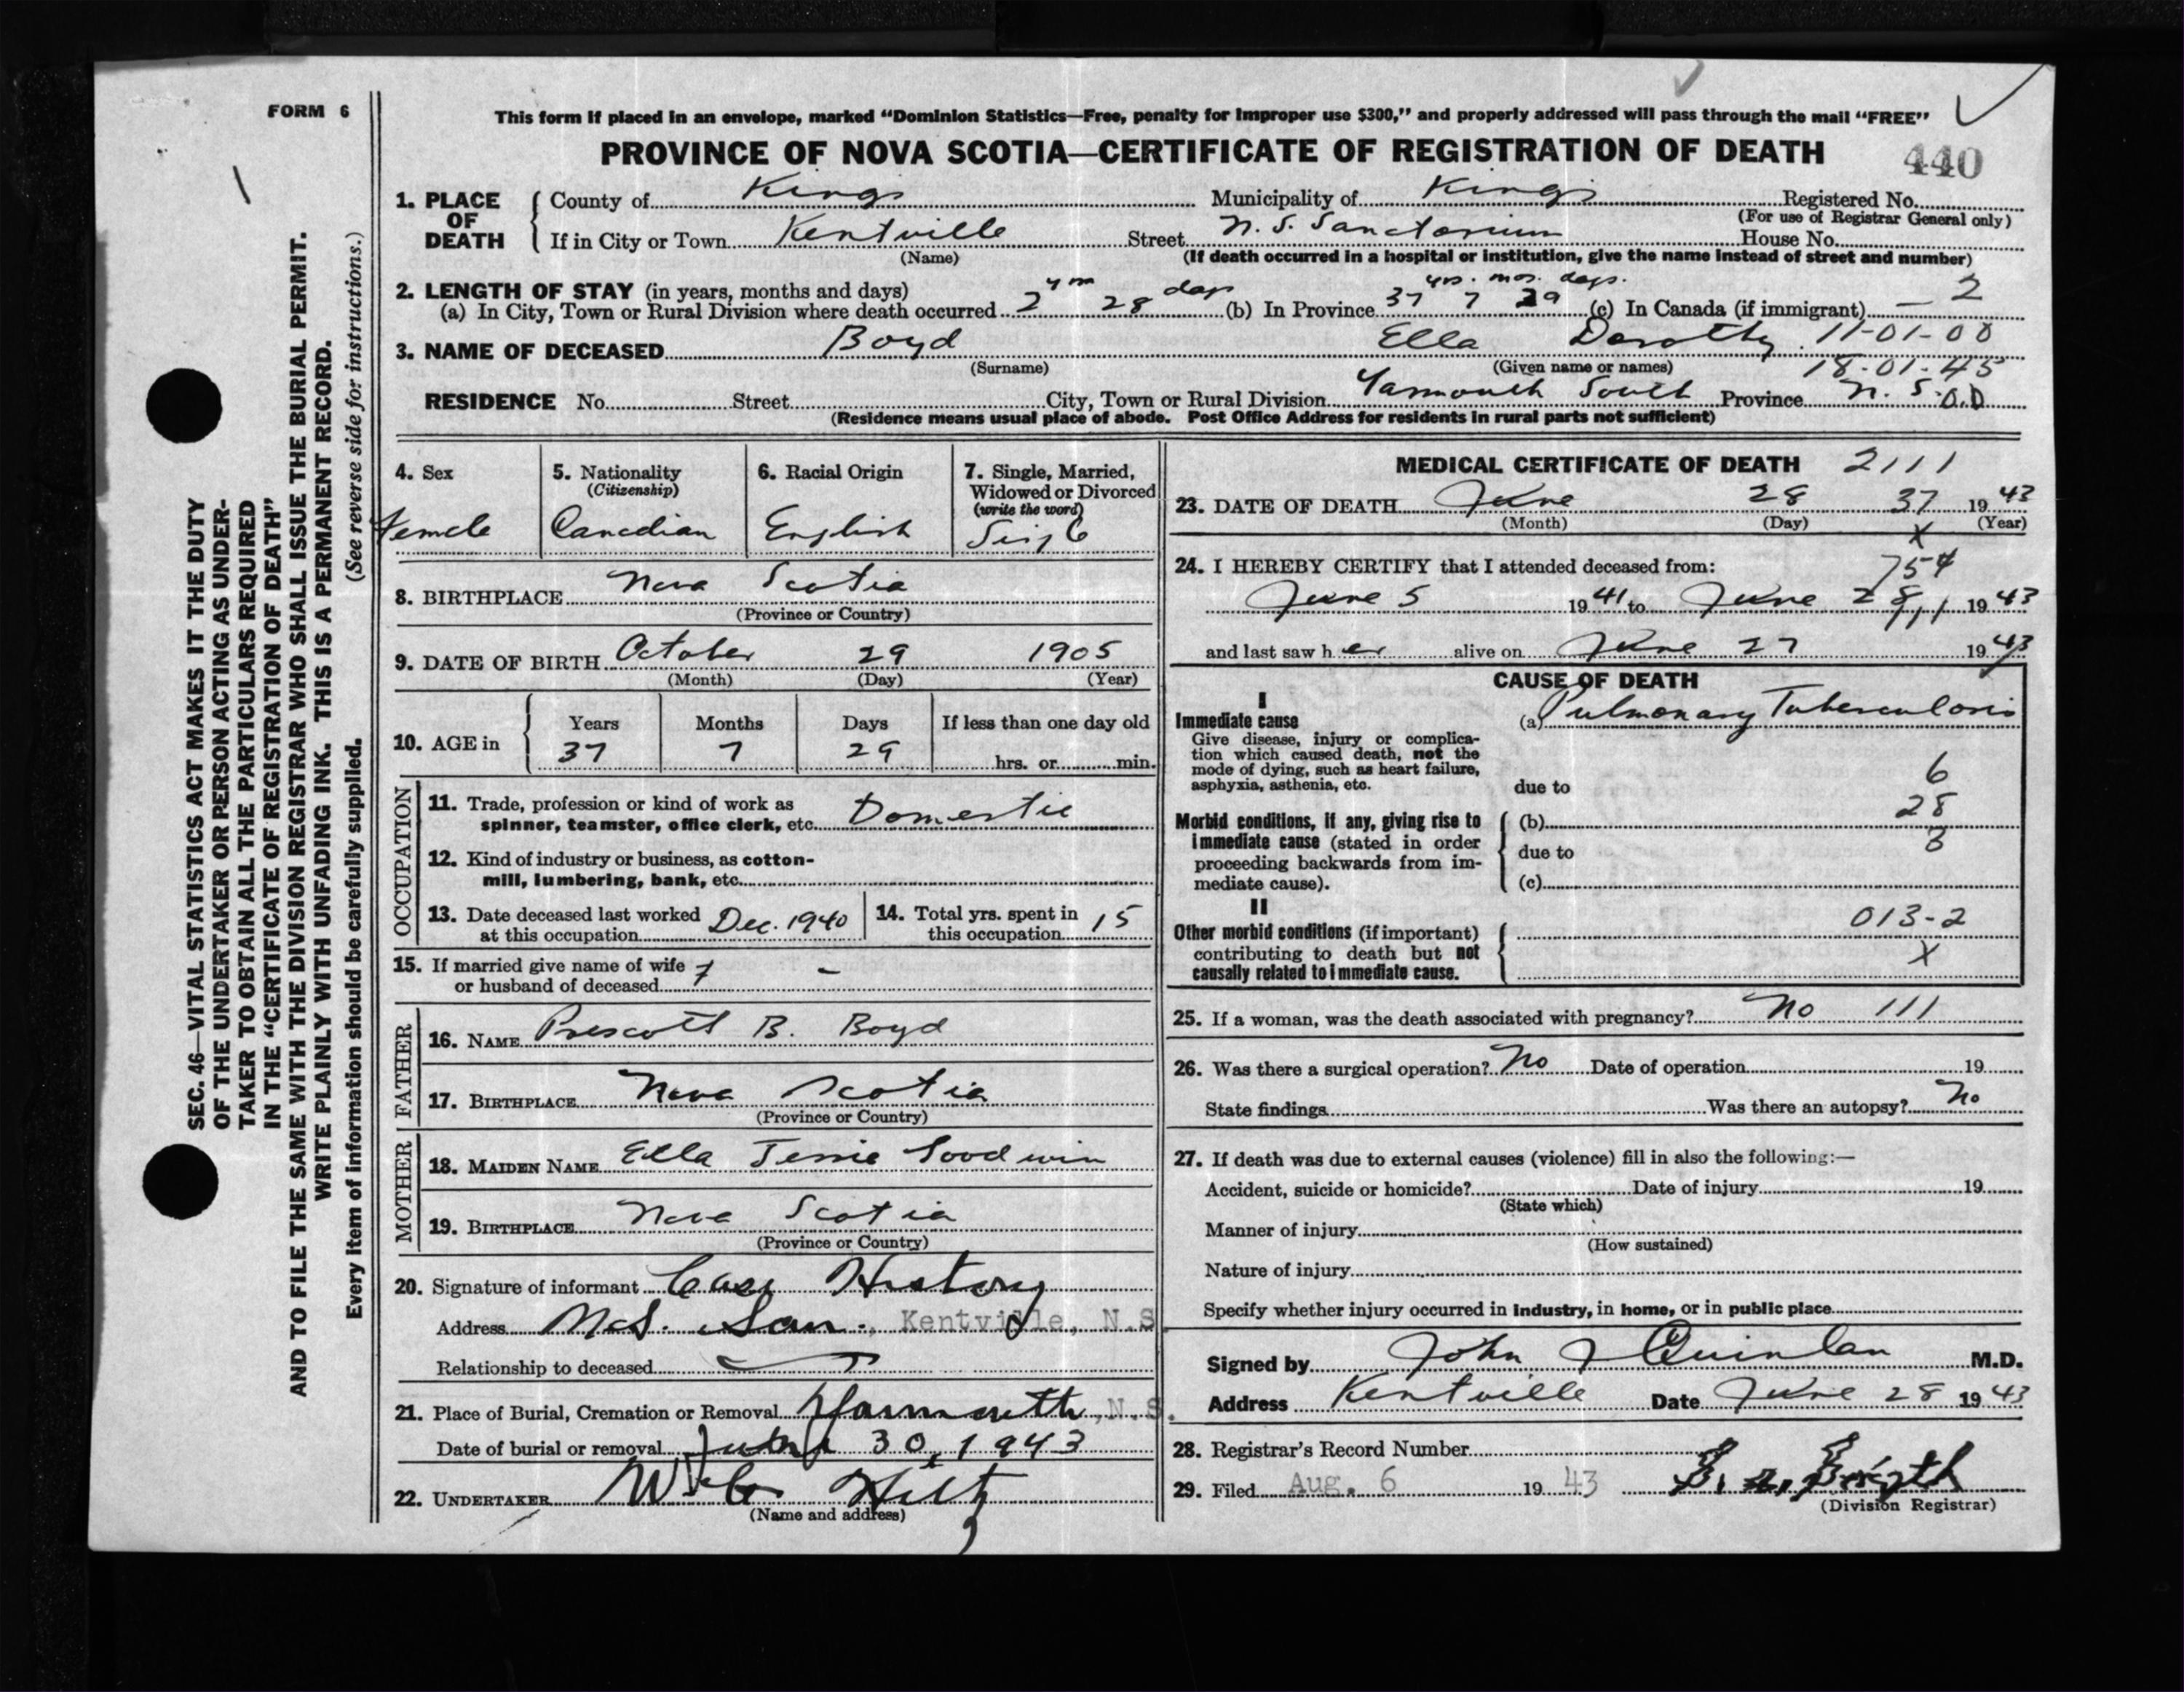 FORM 6
This form if placed in an envelope, marked "Dominion Statistics—Free, penalty for improper use $300," and properly addressed will pass through the mail "FREE"
PROVINCE OF NOVA SCOTIA—CERTIFICATE OF REGISTRATION OF DEATH 440
1. PLACE OF DEATH
County of Kings Municipality of Kings Registered No.
(For use of Registrar General only)
If in City or Town Kentville Street N. S. Sanctorium House No.
(Name) (If death occurred in a hospital or institution, give the name instead of street and number)
2. LENGTH OF STAY (in years, months and days)
(a) In City, Town or Rural Division where death occurred 2 yrs 28 days (b) In Province 37 yrs. 7 mos. 29 days. (c) In Canada (if immigrant) — 2
3. NAME OF DECEASED Boyd Ella Dorothy 11-01-00
(Surname) (Given name or names) 18-01-45
RESIDENCE No. Street City, Town or Rural Division Yarmouth South Province N. S. O.D
(Residence means usual place of abode. Post Office Address for residents in rural parts not sufficient)
4. Sex
Female
5. Nationality
(Citizenship)
Canadian
6. Racial Origin
English
7. Single, Married,
Widowed or Divorced
(write the word)
Single
8. BIRTHPLACE Nova Scotia
(Province or Country)
9. DATE OF BIRTH October 29 1905
(Month) (Day) (Year)
10. AGE in
Years Months Days If less than one day old
37 7 29 hrs. or min.
OCCUPATION
11. Trade, profession or kind of work as
spinner, teamster, office clerk, etc. Domestic
12. Kind of industry or business, as cotton-
mill, lumbering, bank, etc.
13. Date deceased last worked
at this occupation Dec. 1940
14. Total yrs. spent in
this occupation 15
15. If married give name of wife
or husband of deceased –
FATHER
16. NAME Prescott B. Boyd
17. BIRTHPLACE Nova Scotia
(Province or Country)
MOTHER
18. MAIDEN NAME Ella Jessie Goodwin
19. BIRTHPLACE Nova Scotia
(Province or Country)
20. Signature of informant Case History
Address N.S. San., Kentville, N.S.
Relationship to deceased
21. Place of Burial, Cremation or Removal Yarmouth, N.S.
Date of burial or removal 30, 1943
22. UNDERTAKER Hiltz
(Name and address)
MEDICAL CERTIFICATE OF DEATH 2111
23. DATE OF DEATH June 28 37 1943
(Month) (Day) X (Year)
24. I HEREBY CERTIFY that I attended deceased from: 754
June 5 1941 to June 28 1943
111
and last saw her alive on June 27 1943
CAUSE OF DEATH
I
Immediate cause
Give disease, injury or complica-
tion which caused death, not the
mode of dying, such as heart failure,
asphyxia, asthenia, etc.
(a) Pulmonary Tuberculosis
6
due to
28
Morbid conditions, if any, giving rise to
immediate cause (stated in order
proceeding backwards from im-
mediate cause).
(b)
3
due to
(c)
II
Other morbid conditions (if important)
contributing to death but not
causally related to immediate cause.
013-2
X
25. If a woman, was the death associated with pregnancy? No 111
26. Was there a surgical operation? No Date of operation 19
State findings Was there an autopsy? No
27. If death was due to external causes (violence) fill in also the following:—
Accident, suicide or homicide? Date of injury 19
(State which)
Manner of injury
(How sustained)
Nature of injury
Specify whether injury occurred in industry, in home, or in public place
Signed by John J Quinlan M.D.
Address Kentville Date June 28 1943
28. Registrar's Record Number
29. Filed Aug. 6 1943
(Division Registrar)
SEC. 46—VITAL STATISTICS ACT MAKES IT THE DUTY
OF THE UNDERTAKER OR PERSON ACTING AS UNDER-
TAKER TO OBTAIN ALL THE PARTICULARS REQUIRED
IN THE "CERTIFICATE OF REGISTRATION OF DEATH"
AND TO FILE THE SAME WITH THE DIVISION REGISTRAR WHO SHALL ISSUE THE BURIAL PERMIT.
WRITE PLAINLY WITH UNFADING INK. THIS IS A PERMANENT RECORD.
Every item of information should be carefully supplied. (See reverse side for instructions.)